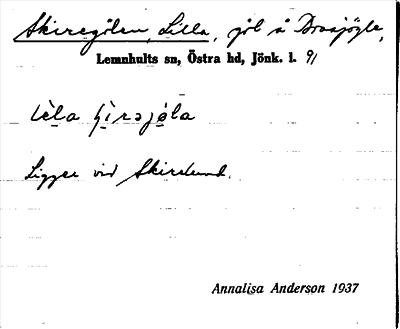 Skiregölen, Lilla, göl å Braajögle,
Lemnhults sn, Östra hd, Jönk. l. 9/
Ligger vid Skirelund.
Annalisa Anderson 1937